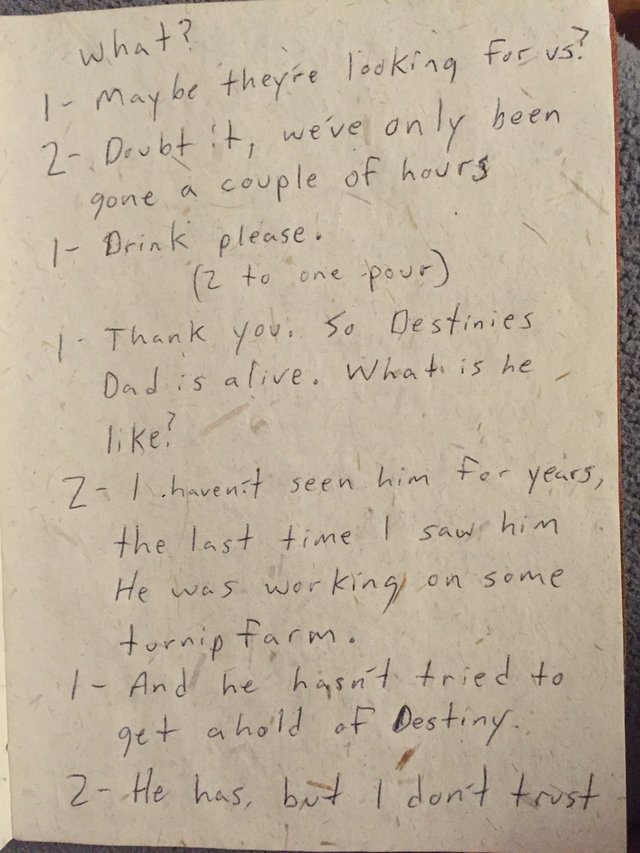 What?
1- Maybe they're looking for us?
2- Doubt it, we've only been
gone a couple of hours
1- Drink please.
(2 to one pour)
1- Thank you. So Destinies
Dad is alive. What is he
like?
2- I haven't seen him for years,
the last time I saw him
He was working on some
turnip farm.
1- And he hasn't tried to
get ahold of Destiny.
2- He has, but I don't trust